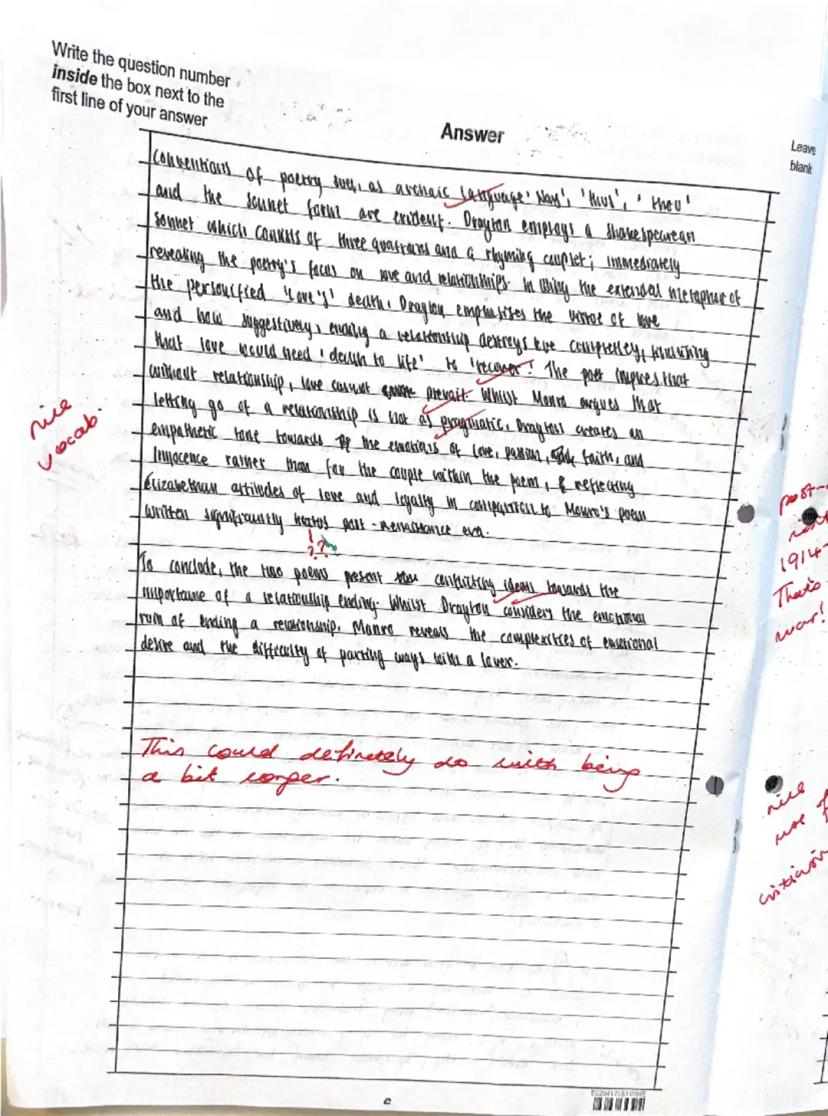 Write the question number
inside the box next to the
first line of your answer
Answer
Leave
blank
conventions of poetry such as archaic language: 'Nay', 'thus', 'thou'
and the sonnet forms are evident. Drayton employs a Shakespearean
sonnet which consists of three quatrains and a rhyming couplet; immediately
revealing the poetry's focus on love and relationships. In using the extended metaphor of
the personified 'Love's' death, Drayton emphasises the of love
and how suggestively, ending a relationship destroys love completely,
that love would need 'death to life' to 'recover'. The poet implies that
without relationship, love cannot prevail. Whilst Monro argues that
letting go of a relationship is not as pragmatic, Drayton creates an
empathetic tone towards the emotions of love, passion, faith, and
Innocence rather than for the couple within the poem, reflecting
Elizabethan attitudes of love and loyalty in comparison to Monro's poem
written significantly post-Renaissance era.
!
??
To conclude, the two poems present conflicting ideas towards the
importance of a relationship ending. Whilst Drayton considers the emotional
ruin of ending a relationship, Monro reveals the complexities of emotional
desire and the difficulty of parting ways with a lover.
nice
vocab.
This could definetely do with being
a bit longer.
post-
1914-
That's
war!
nice
use of